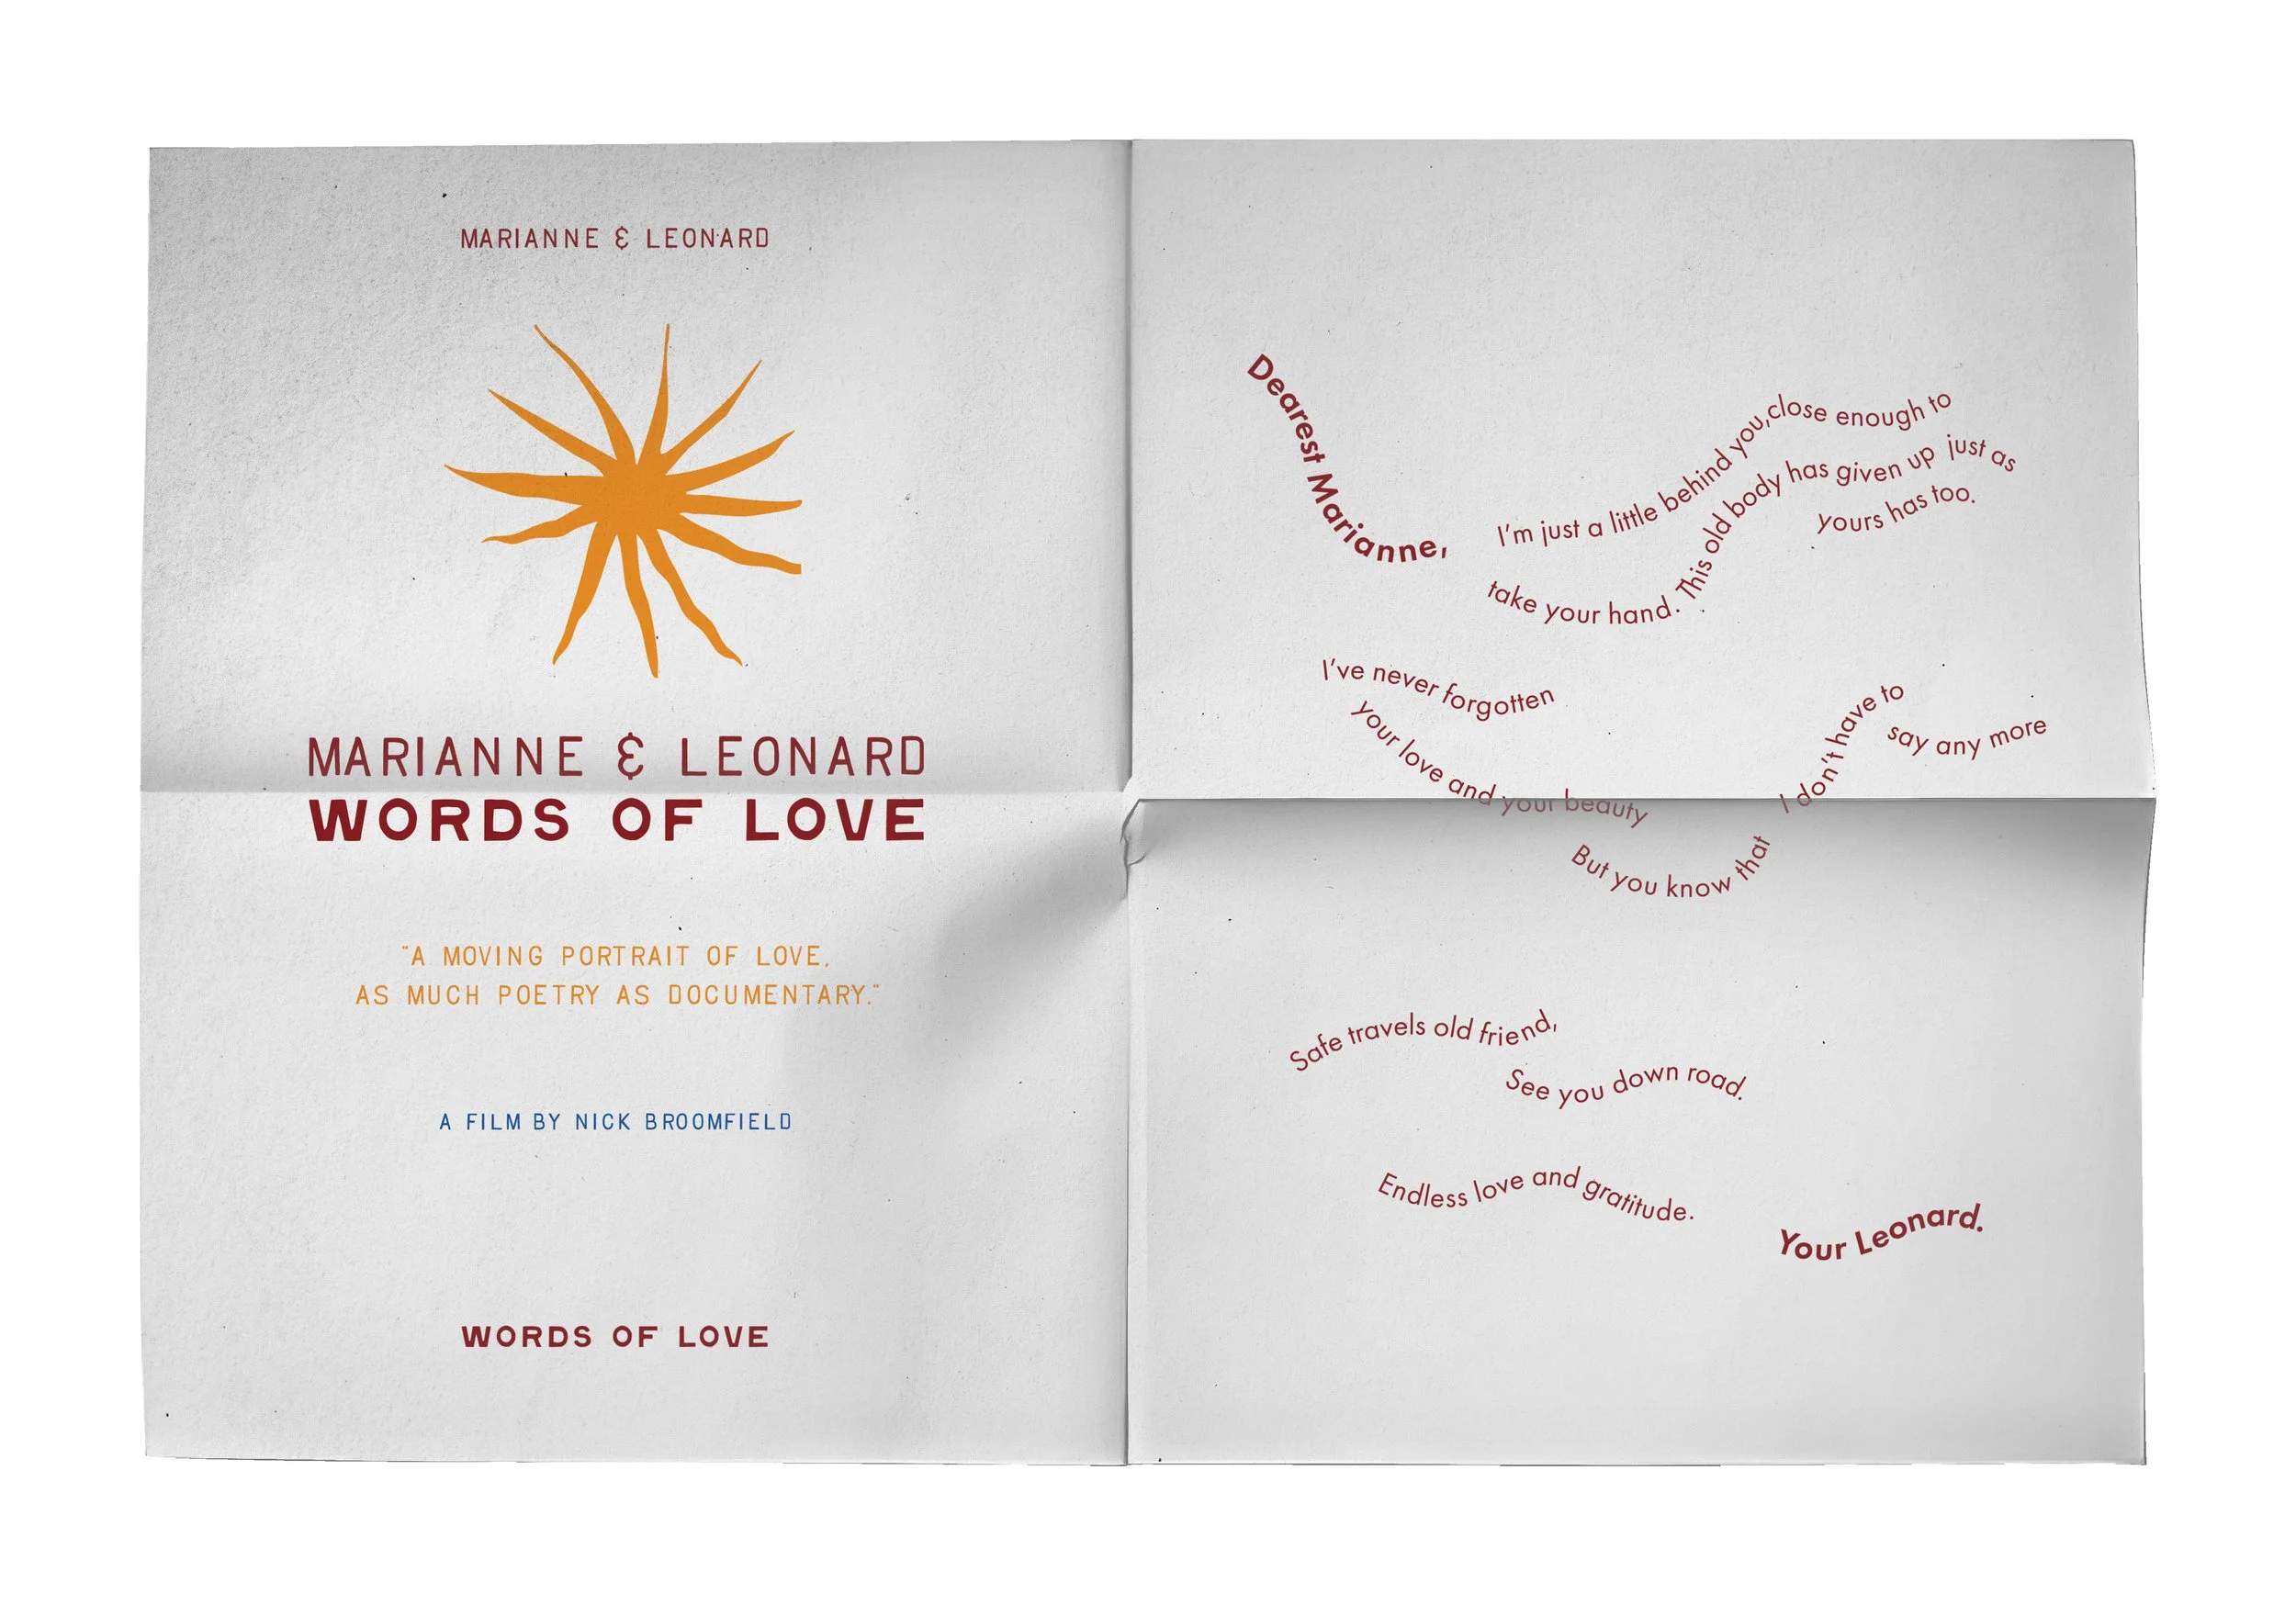 MARIANNE & LEONARD
MARIANNE & LEONARD
WORDS OF LOVE
"A MOVING PORTRAIT OF LOVE,
AS MUCH POETRY AS DOCUMENTARY."
A FILM BY NICK BROOMFIELD
WORDS OF LOVE
Dearest Marianne,
I'm just a little behind you,close enough to
take your hand. This old body has given up just as
yours has too.
I've never forgotten
your love and your beauty
But you know that I don't have to
say any more
Safe travels old friend,
See you down road.
Endless love and gratitude.
Your Leonard.